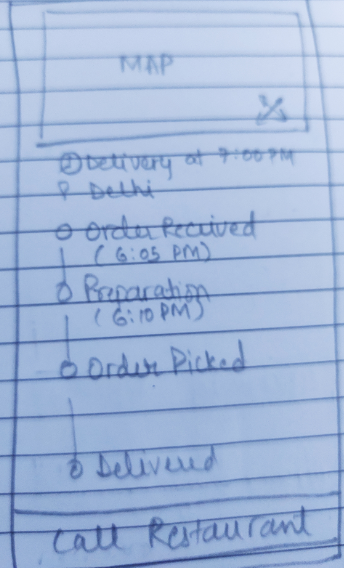 MAP
Delivery at 7:00 PM
Delhi
Order Received
(6:05 PM)
Preparation
(6:10 PM)
Order Picked
Delivered
Call Restaurant